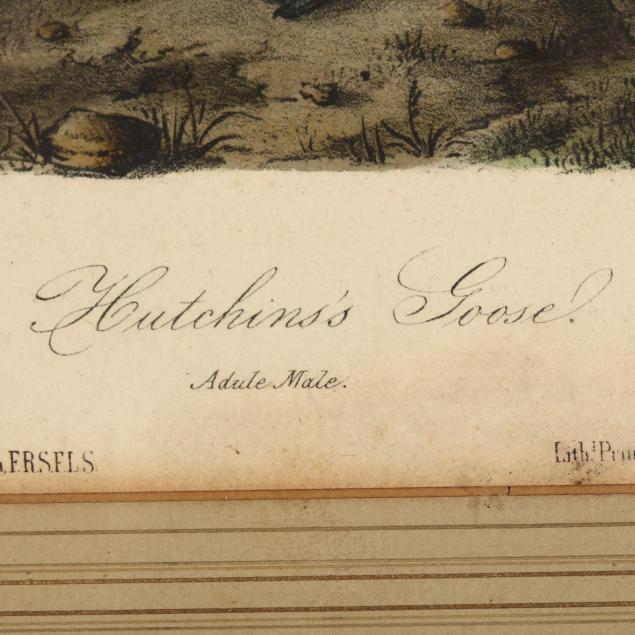 Hutchins's Goose.
Adule Male.
F.R.S.F.L.S.
Lith.d Prin